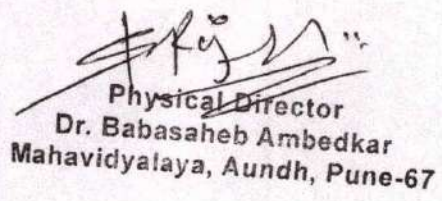 Physical Director
Dr. Babasaheb Ambedkar
Mahavidyalaya, Aundh, Pune-67